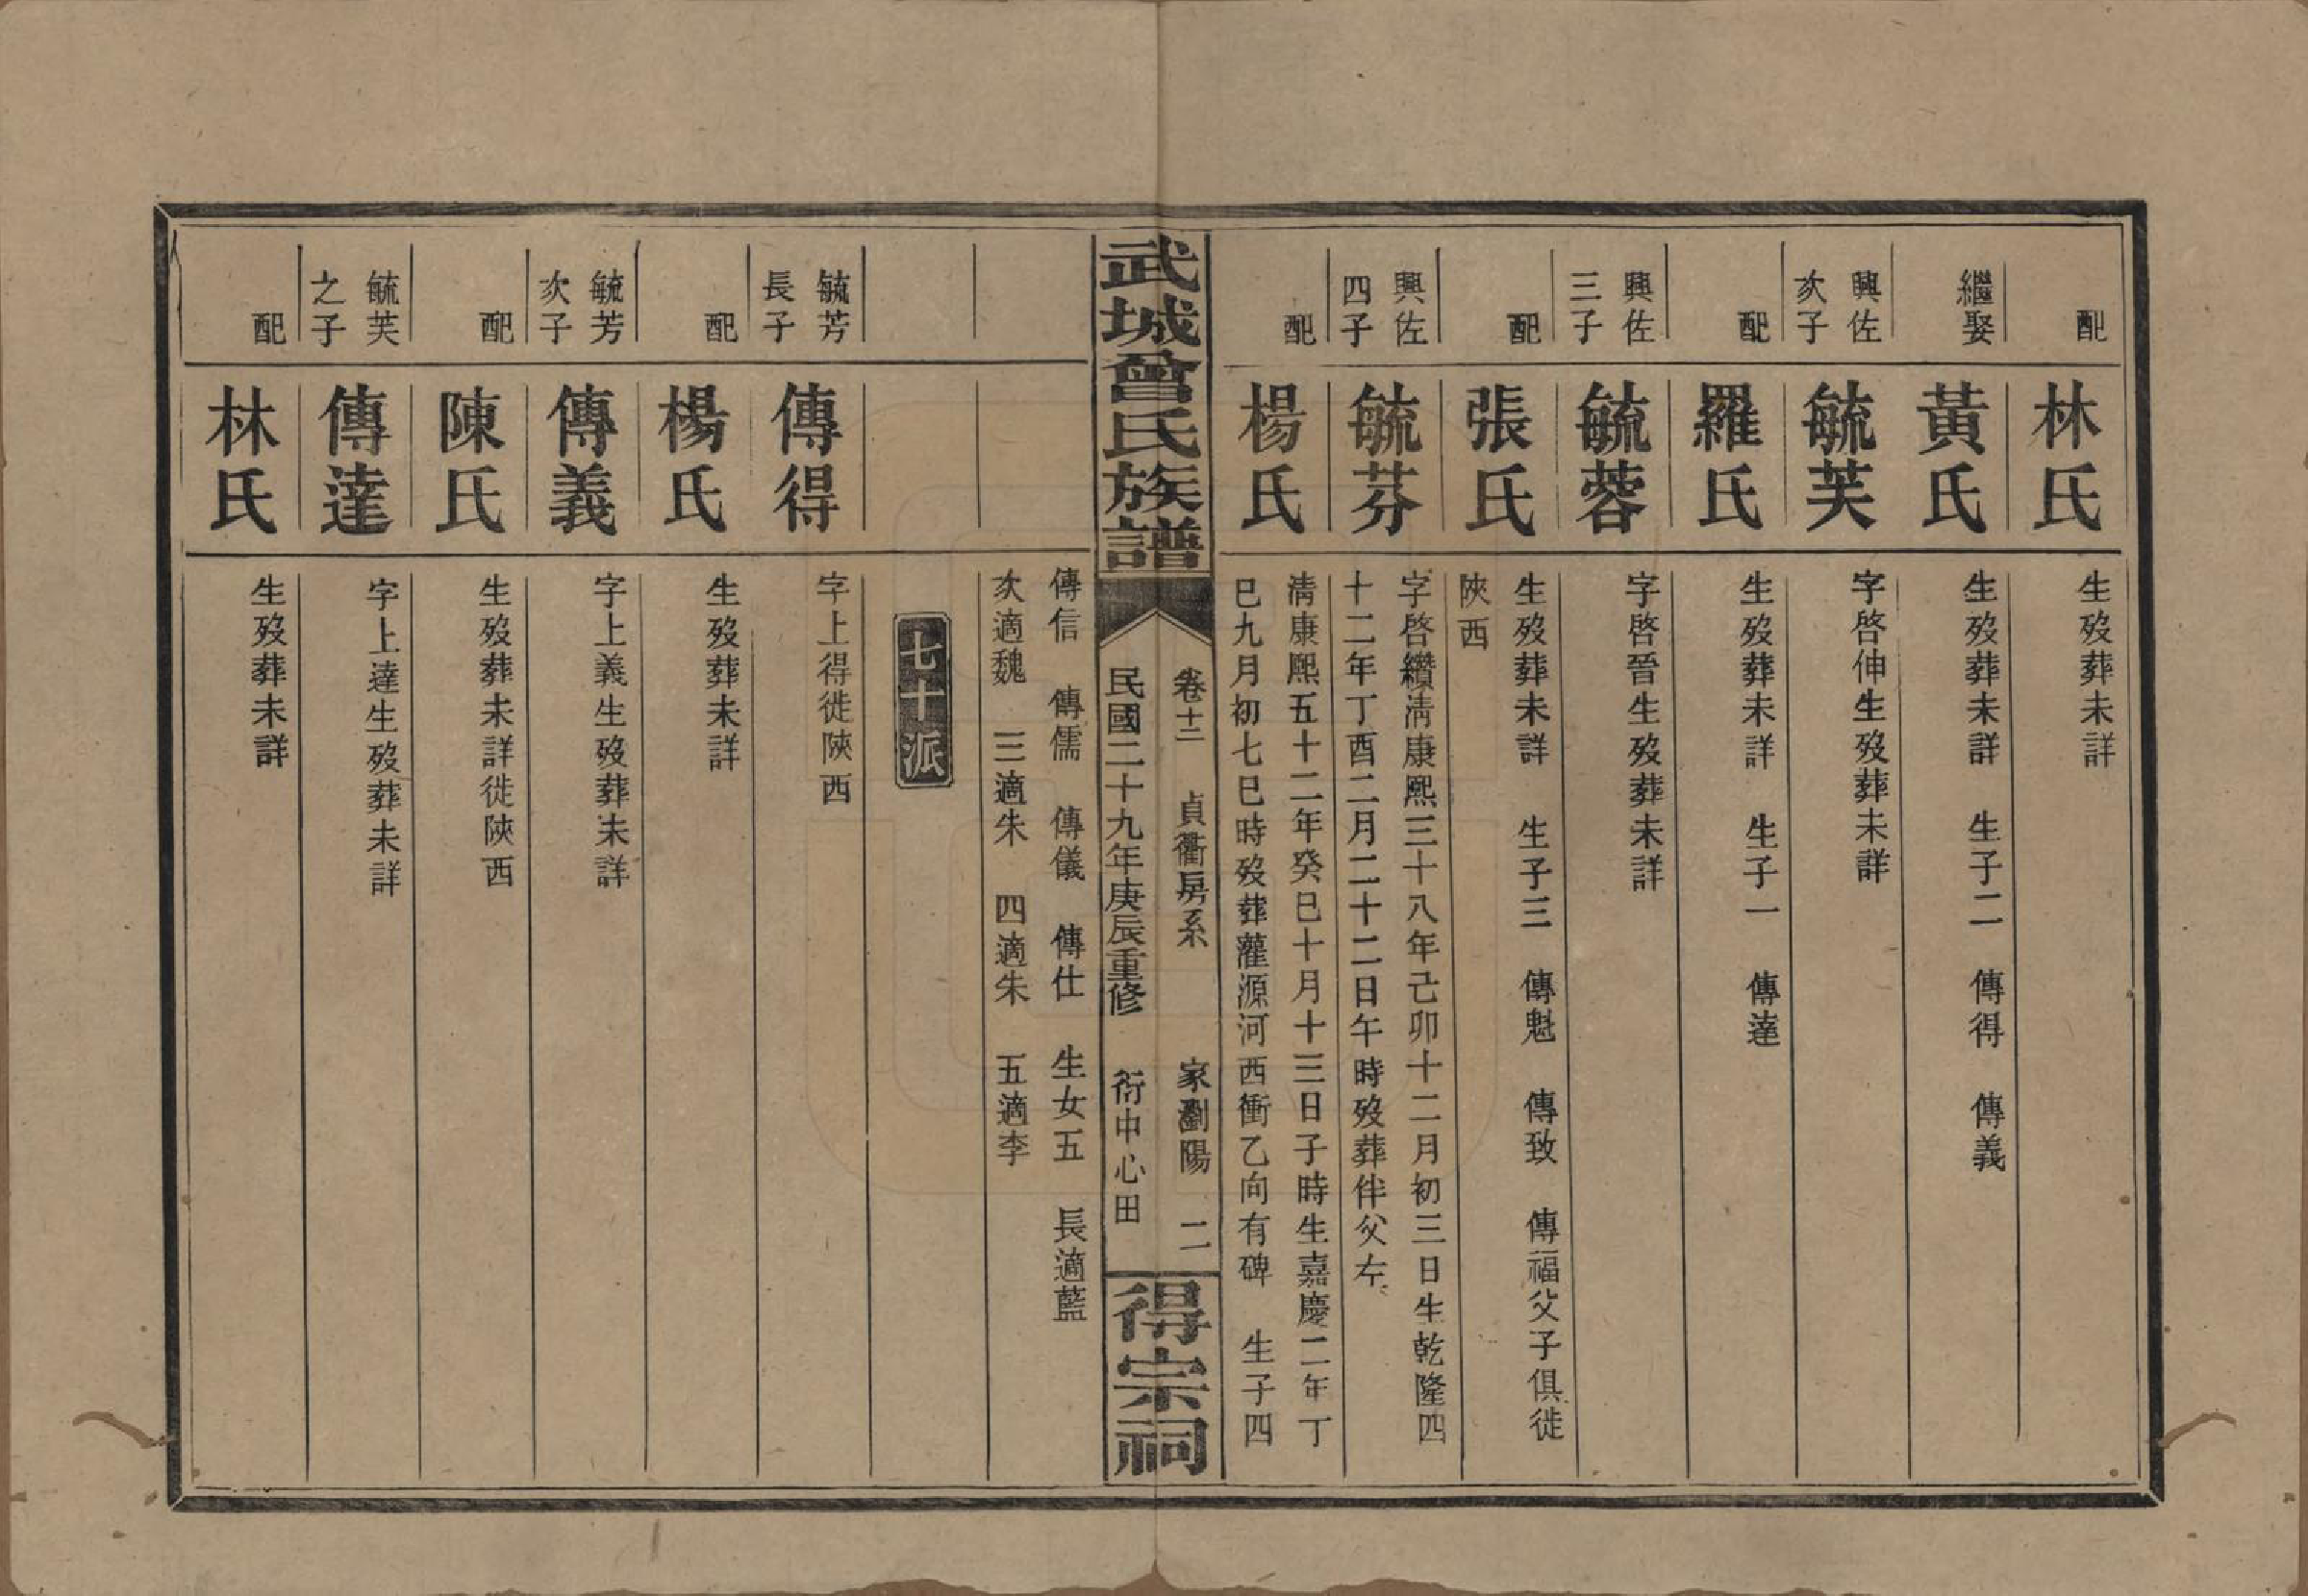 配
林氏
生歿葬未詳
繼娶
黃氏
生歿葬未詳　生子二　傳得　傳義
興佐
次子
毓芙
字啓伸生歿葬未詳
配
羅氏
生歿葬未詳　生子一　傳達
興佐
三子
毓蓉
字啓晉生歿葬未詳
配
張氏
生歿葬未詳　生子三　傳魁　傳致　傳福父子俱徙
陝西
興佐
四子
毓芬
字啓纘清康熙三十八年己卯十二月初三日生乾隆四
十二年丁酉二月二十二日午時歿葬伴父左
配
楊氏
清康熙五十二年癸巳十月十三日子時生嘉慶二年丁
巳九月初七巳時歿葬灌源河西衝乙向有碑　生子四
武城曾氏族譜
卷十二　貞衢房系　家瀏陽　二
民國二十九年庚辰重修　衍中心田
得宗祠
傳信　傳儒　傳儀　傳仕　生女五　長適藍
次適魏　三適朱　四適朱　五適李
七十派
毓芳
長子
傳得
字上得徙陝西
配
楊氏
生歿葬未詳
毓芳
次子
傳義
字上義生歿葬未詳
配
陳氏
生歿葬未詳徙陝西
毓芙
之子
傳達
字上達生歿葬未詳
配
林氏
生歿葬未詳